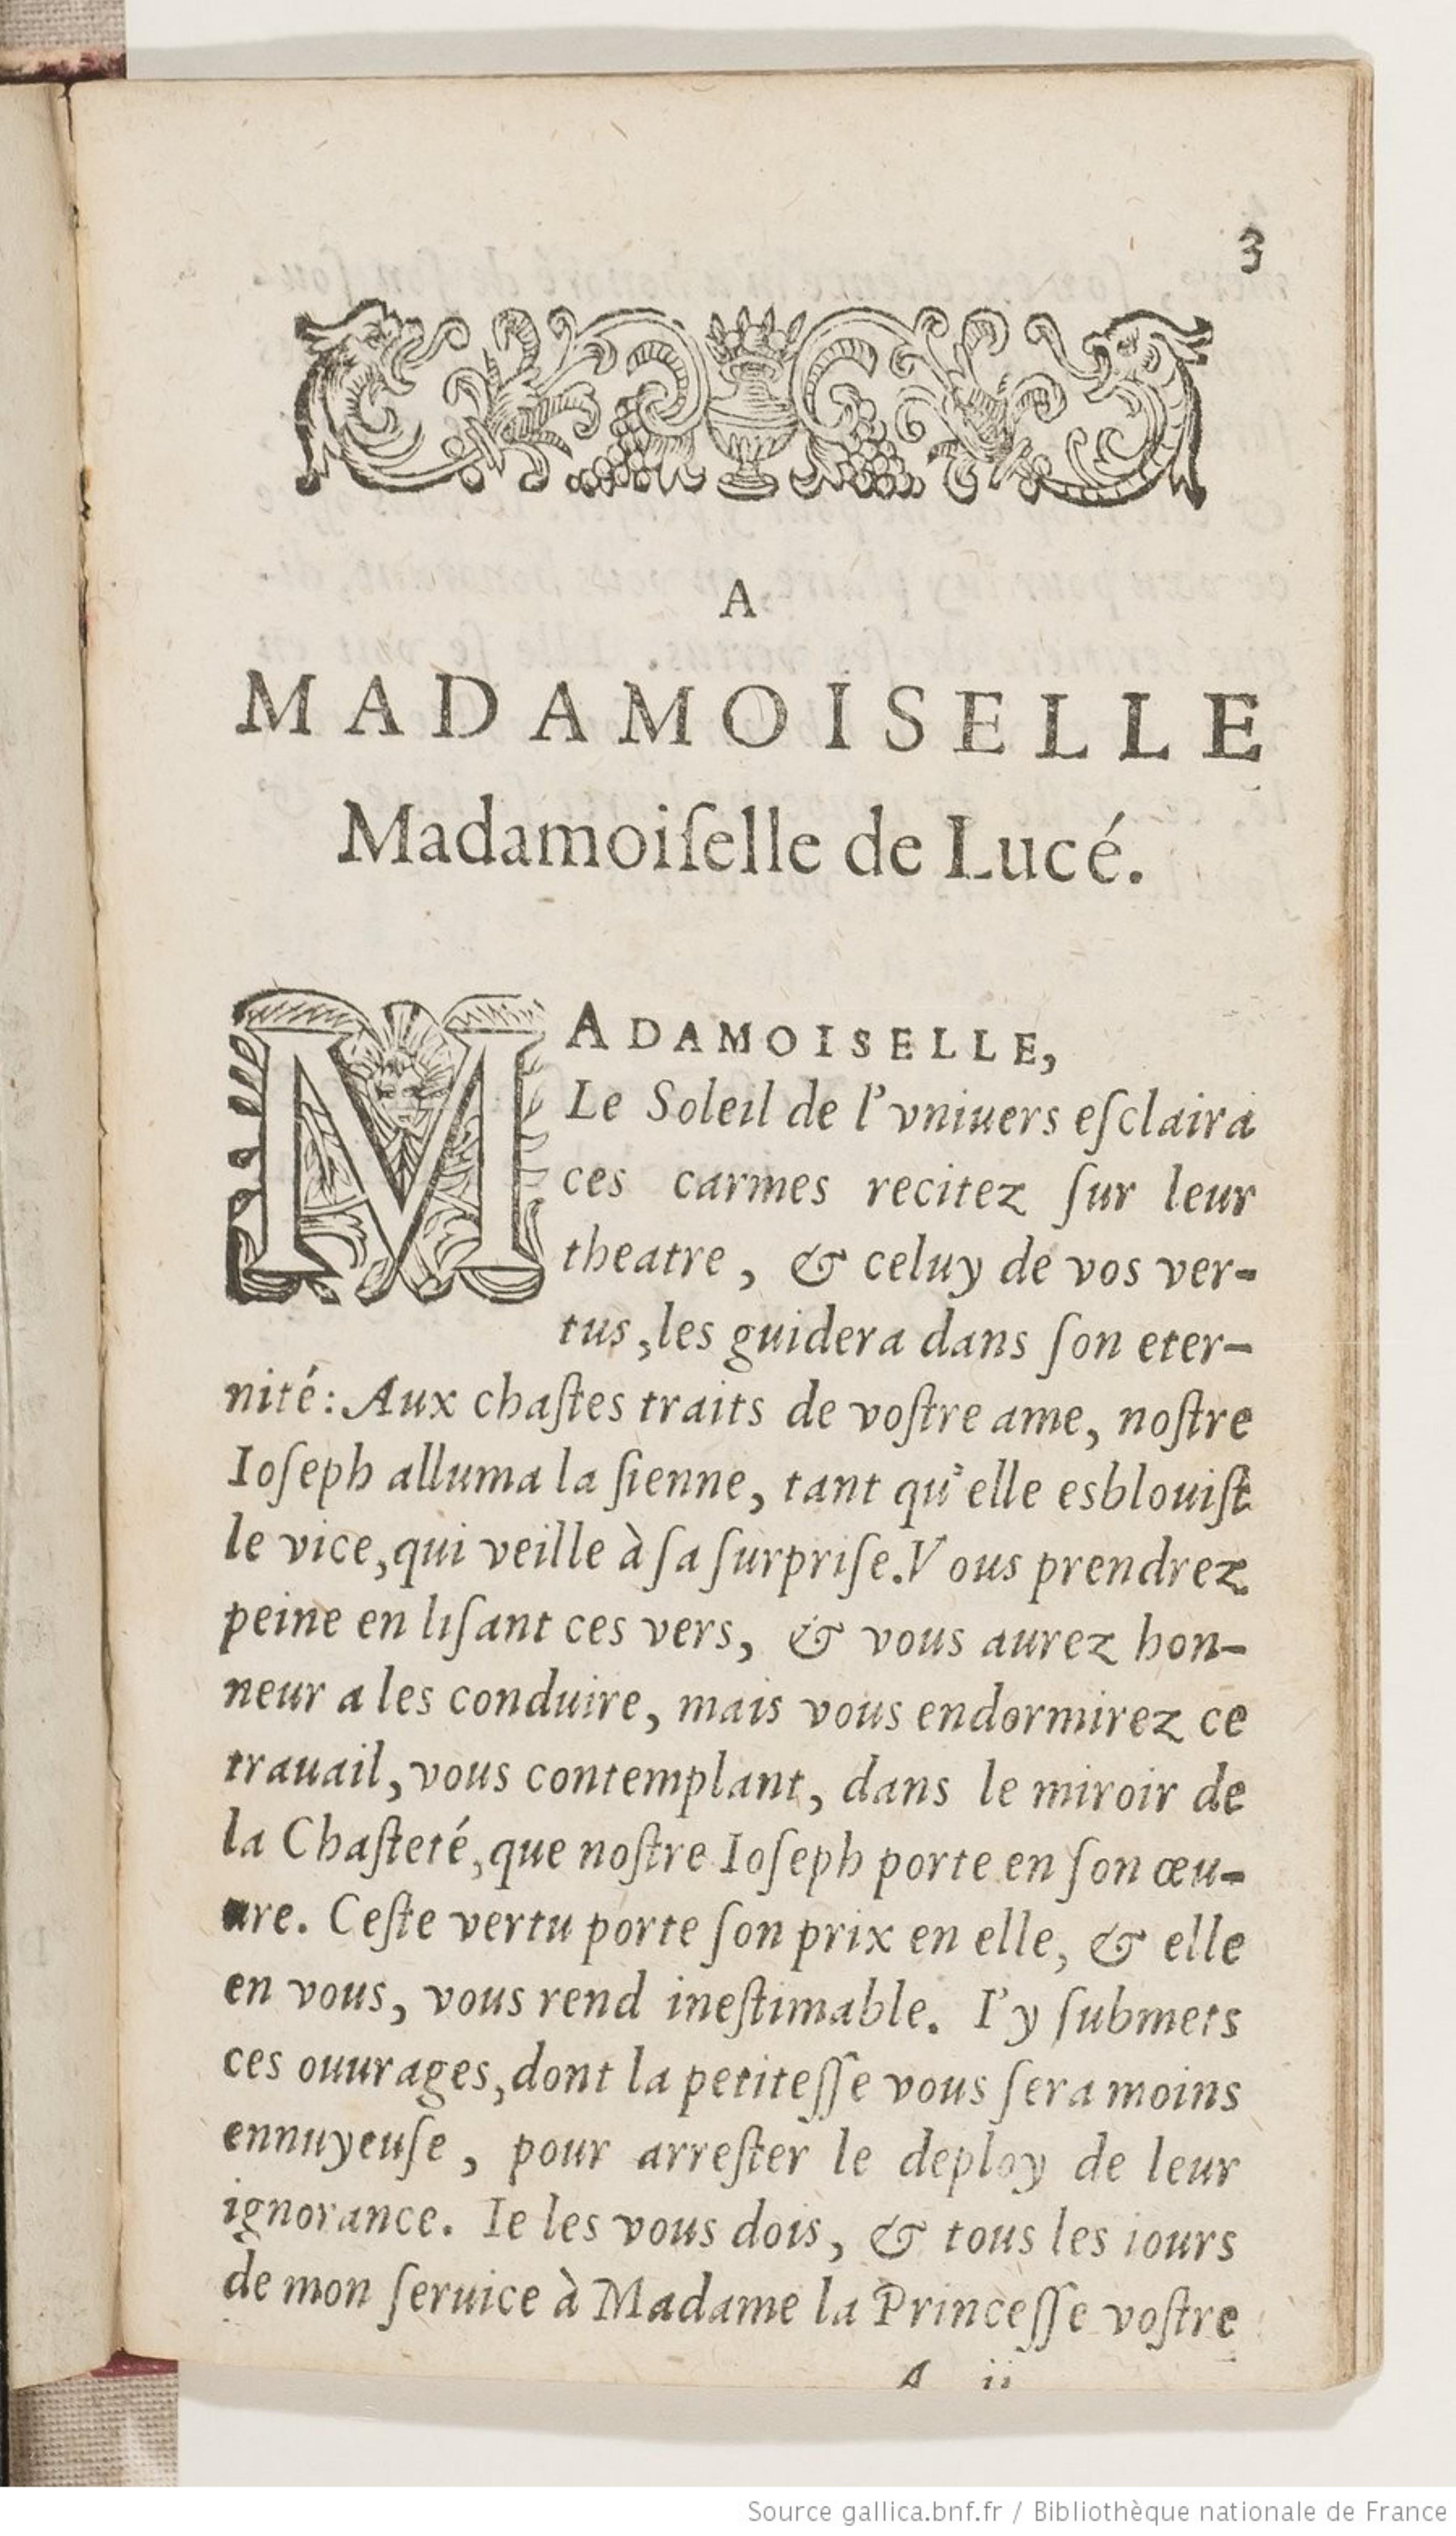 3
A
MADAMOISELLE
Madamoiſelle de Lucé.
MADAMOISELLE,
Le Soleil de l'vniuers eſclaira
ces carmes recitez ſur leur
theatre, & celuy de vos ver-
tus, les guidera dans ſon eter-
nité: Aux chaſtes traits de voſtre ame, noſtre
Ioſeph alluma la ſienne, tant qu'elle esblouiſt
le vice, qui veille à ſa ſurpriſe. Vous prendrez
peine en liſant ces vers, & vous aurez hon-
neur a les conduire, mais vous endormirez ce
trauail, vous contemplant, dans le miroir de
la Chaſteté, que noſtre Ioſeph porte en ſon œu-
ure. Ceſte vertu porte ſon prix en elle, & elle
en vous, vous rend ineſtimable. I'y ſubmets
ces ouurages, dont la petiteſſe vous ſera moins
ennuyeuſe, pour arreſter le deploy de leur
ignorance. Ie les vous dois, & tous les iours
de mon ſeruice à Madame la Princeſſe voſtre
A ii
Source gallica.bnf.fr / Bibliothèque nationale de France